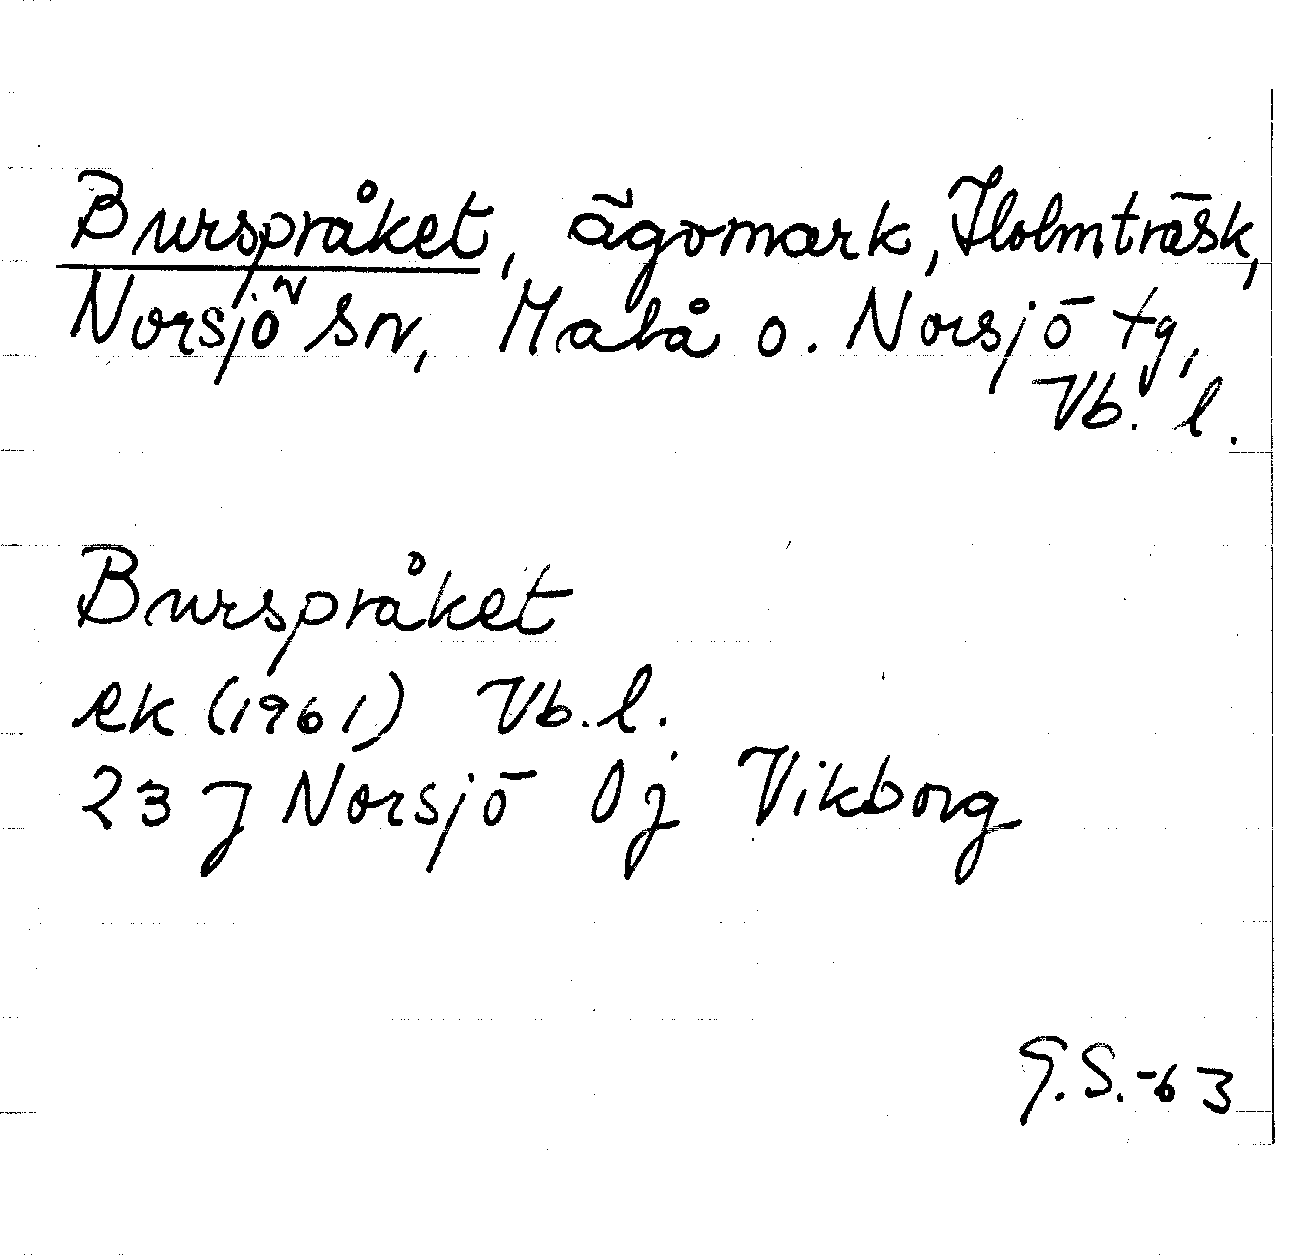 Burspråket, ägomark, Holmträsk,
Norsjö sn, Malå o. Norsjö tg,
Vb. l.
Burspråket
ek (1961) Vb. l.
23 J Norsjö 0j Vikborg
G.S.-63